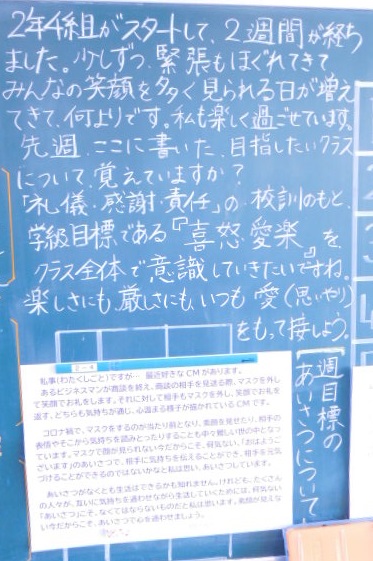 2年4組がスタートして、2週間が経ち
ました。少しずつ、緊張もほぐれてきて
みんなの笑顔を多く見られる日が増え
てきて、何よりです。私も楽しく過ごせています。
先週、ここに書いた、目指したいクラス
について、覚えていますか?
「礼儀・感謝・責任」の校訓のもと、
学級目標である『喜怒愛楽』を
クラス全体で意識していきたいですね。
楽しさにも、厳しさにも、いつも愛(思いやり)
をもって接しよう。
週目標の
あいさつについて
2-4
私事(わたくしごと)ですが… 最近好きなCMがあります。
あるビジネスマンが商談を終え、商談の相手を見送る際、マスクを外し
て笑顔でお礼をします。それに対して相手もマスクを外し、笑顔でお礼を
返す。どちらも気持ちが通じ、心温まる様子が描かれているCMです。
コロナ禍で、マスクをするのが当たり前となり、素顔を見せたり、相手の
表情やそこから気持ちを読みとったりすることも中々難しい世の中となっ
ています。マスクで顔が見られない今だからこそ、何気ない、「おはようご
ざいます」のあいさつで、相手に気持ちを伝えることができ、相手を元気
づけることができるのではないかなと私は思い、あいさつしています。
あいさつがなくとも生活はできるかも知れません。けれども、たくさん
の人々が、互いに気持ちを通わせながら生活していくためには、何気ない
「あいさつ」こそ、なくてはならないものだと私は思います。素顔が見えな
い今だからこそ、あいさつで心を通わせましょう。